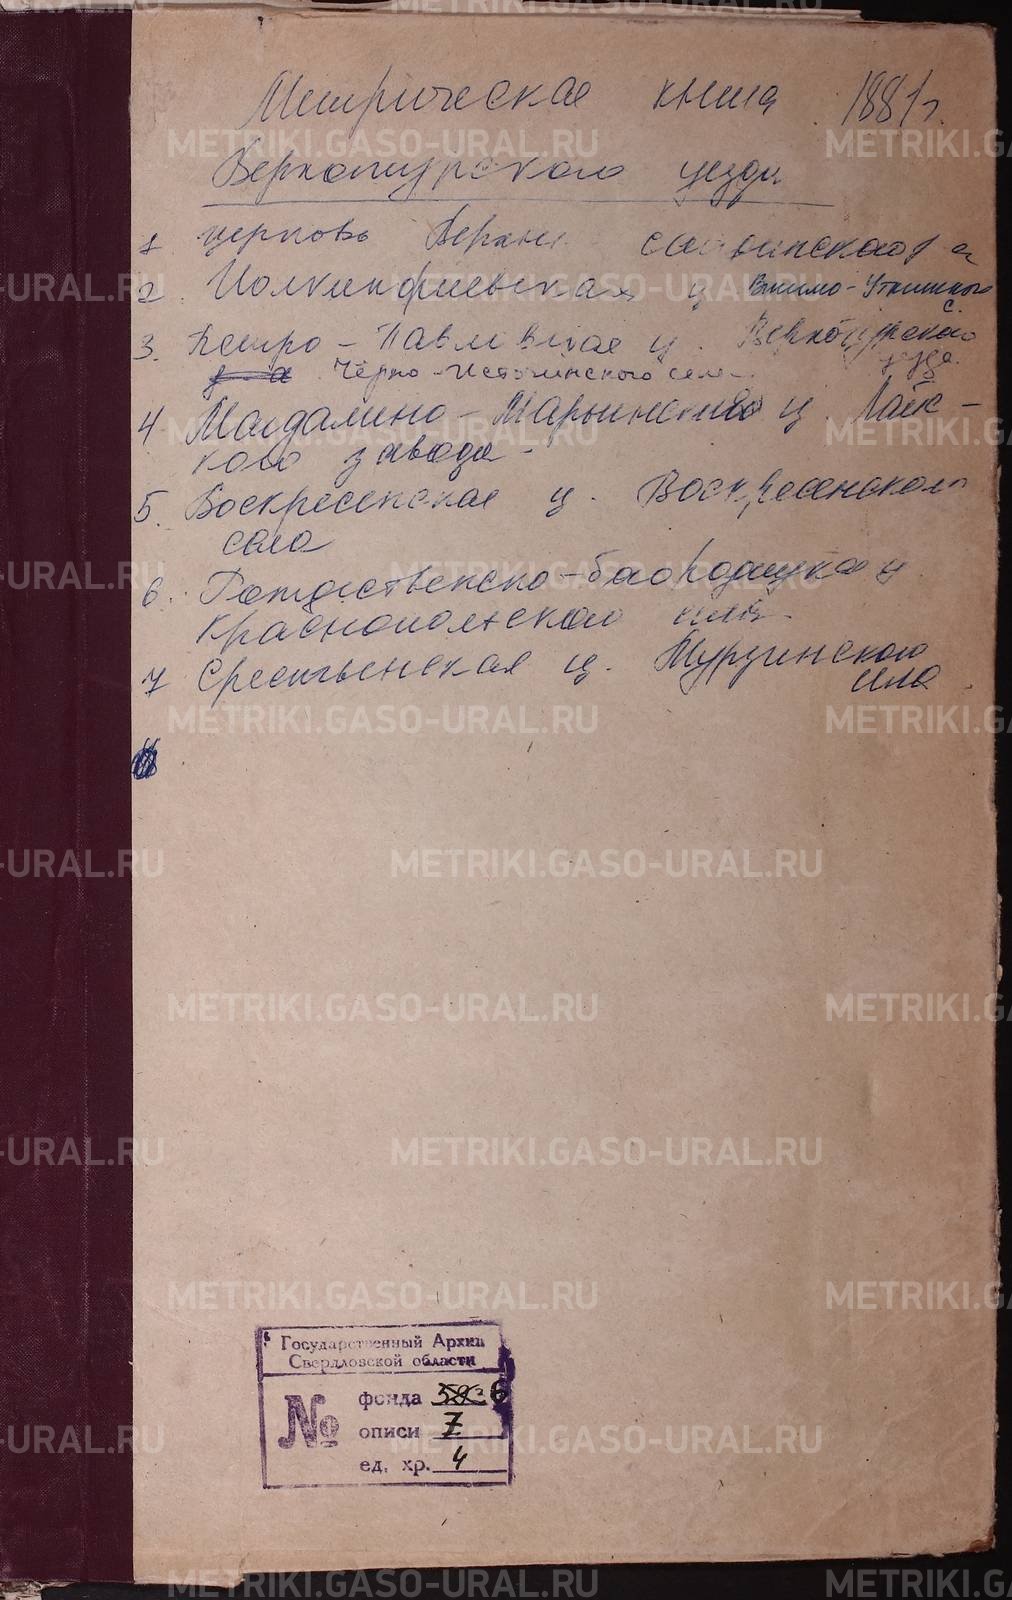 Метрическая книга 1881 г.
Верхотурского уезда
1 церковь Верхне
2. Иолкипфиевская ц Висимо-Уткинского с.
3. Петро-Павловская ц. Верхотурского уезда
Черно-Источинского села
4 Магдалино-Марьинская ц. Лайс-
кого завода
5. Воскресенская ц. Воскресенского
села
6. Рождественско-богородицкая ц
Краснопольского села.
7 Сретенская ц. Мурзинского
села
METRIKI.GASO-URAL.RU
Государственный Архив
Свердловской области
№
фонда 6
описи 7
ед. хр. 4